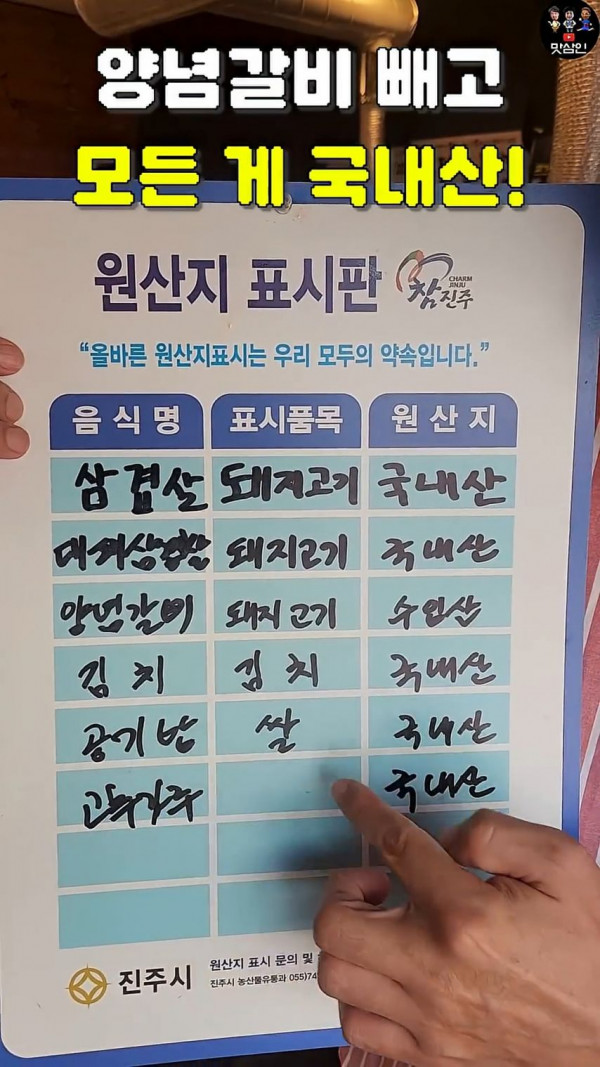 맛삼인
양념갈비 빼고
모든 게 국내산!
원산지 표시판
참진주
CHARM
JINJU
“올바른 원산지표시는 우리 모두의 약속입니다.”
음식명 표시품목 원산지
삼겹살 돼지고기 국내산
대패삼겹살 돼지고기 국내산
양념갈비 돼지고기 수입산
김치 김치 국내산
공기밥 쌀 국내산
고추가루 국내산
진주시
원산지 표시 문의 및
진주시 농산물유통과 055)74